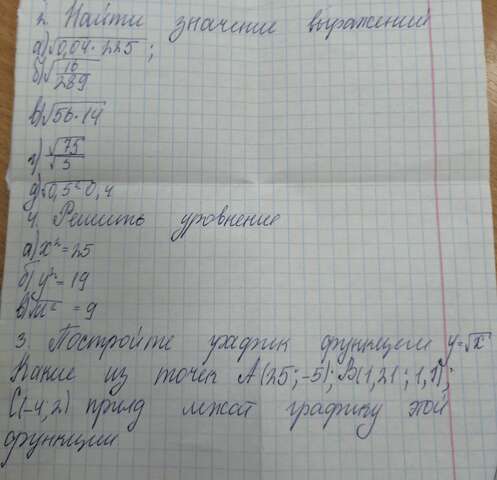 2. Найти значение выражений
а) √0,04 · 225;
б) √16/289
в) √56 · 14
г) √75/√3
д) √0,5² 0,4
4. Решить уровнение
а) x² = 25
б) y² = 19
в) = 9
3. Постройте график функцыи y = √x
Какие из точек А(25; -5); В(1,21; 1,1);
С(-4; 2) пренд лежат графику этой
функции